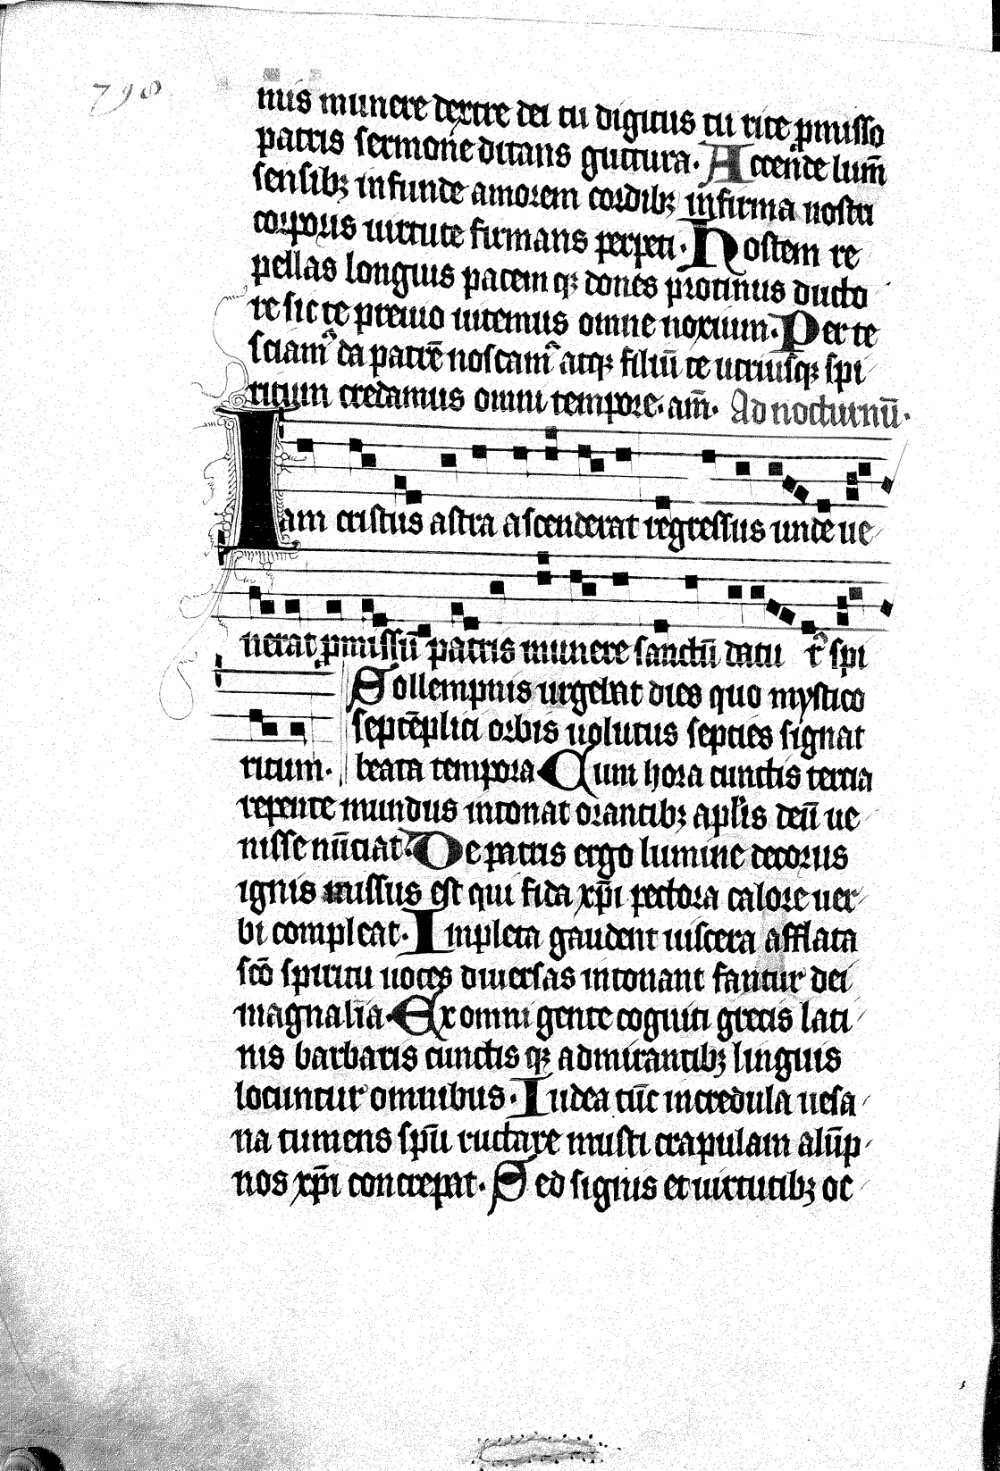 798
mis munere dextre dei tu digitus tu rite ꝓmisso
patris sermone ditans guttura. Accende lum̄
sensibꝫ infunde amorem cordibꝫ infirma nostri
corporis uirtute firmans perpeti. Hostem re
pellas longius pacem qꝫ dones protinus ducto
re sic te preuio uitemus omne noxium. Per te
sciamꝰ da patrē noscamꝰ atqꝫ filiū te utriusqꝫ spi
ritum credamus omni tempore. am̄. Ad nocturnū.
Iam cristus astra ascenderat regressus unde ue
nerat ꝓmissū patris munere sanctū datu rꝰ spi
Sollempnis urgebat dies quo mystico
septēplici orbis uolutus septies signat
ritum. beata tempora Cum hora cunctis tercia
repente mundus intonat orantibꝫ apl̄is deū ue
nisse nūciat. De patris ergo lumine decorus
ignis missus est qui fida xp̄i pectora calore uer
bi compleat. Impleta gaudent uiscera afflata
sc̄o spiritu uoces diuersas intonant fantur dei
magnalia Ex omni gente cogniti grecis lati
nis barbaris cunctis qꝫ admirantibꝫ linguis
locuntur omnibus. Iudea tūc incredula uesa
na tumens sp̄u ructare musti crapulam alūp
nos xp̄i concrepat. Sed signis et uirtutibꝫ oc